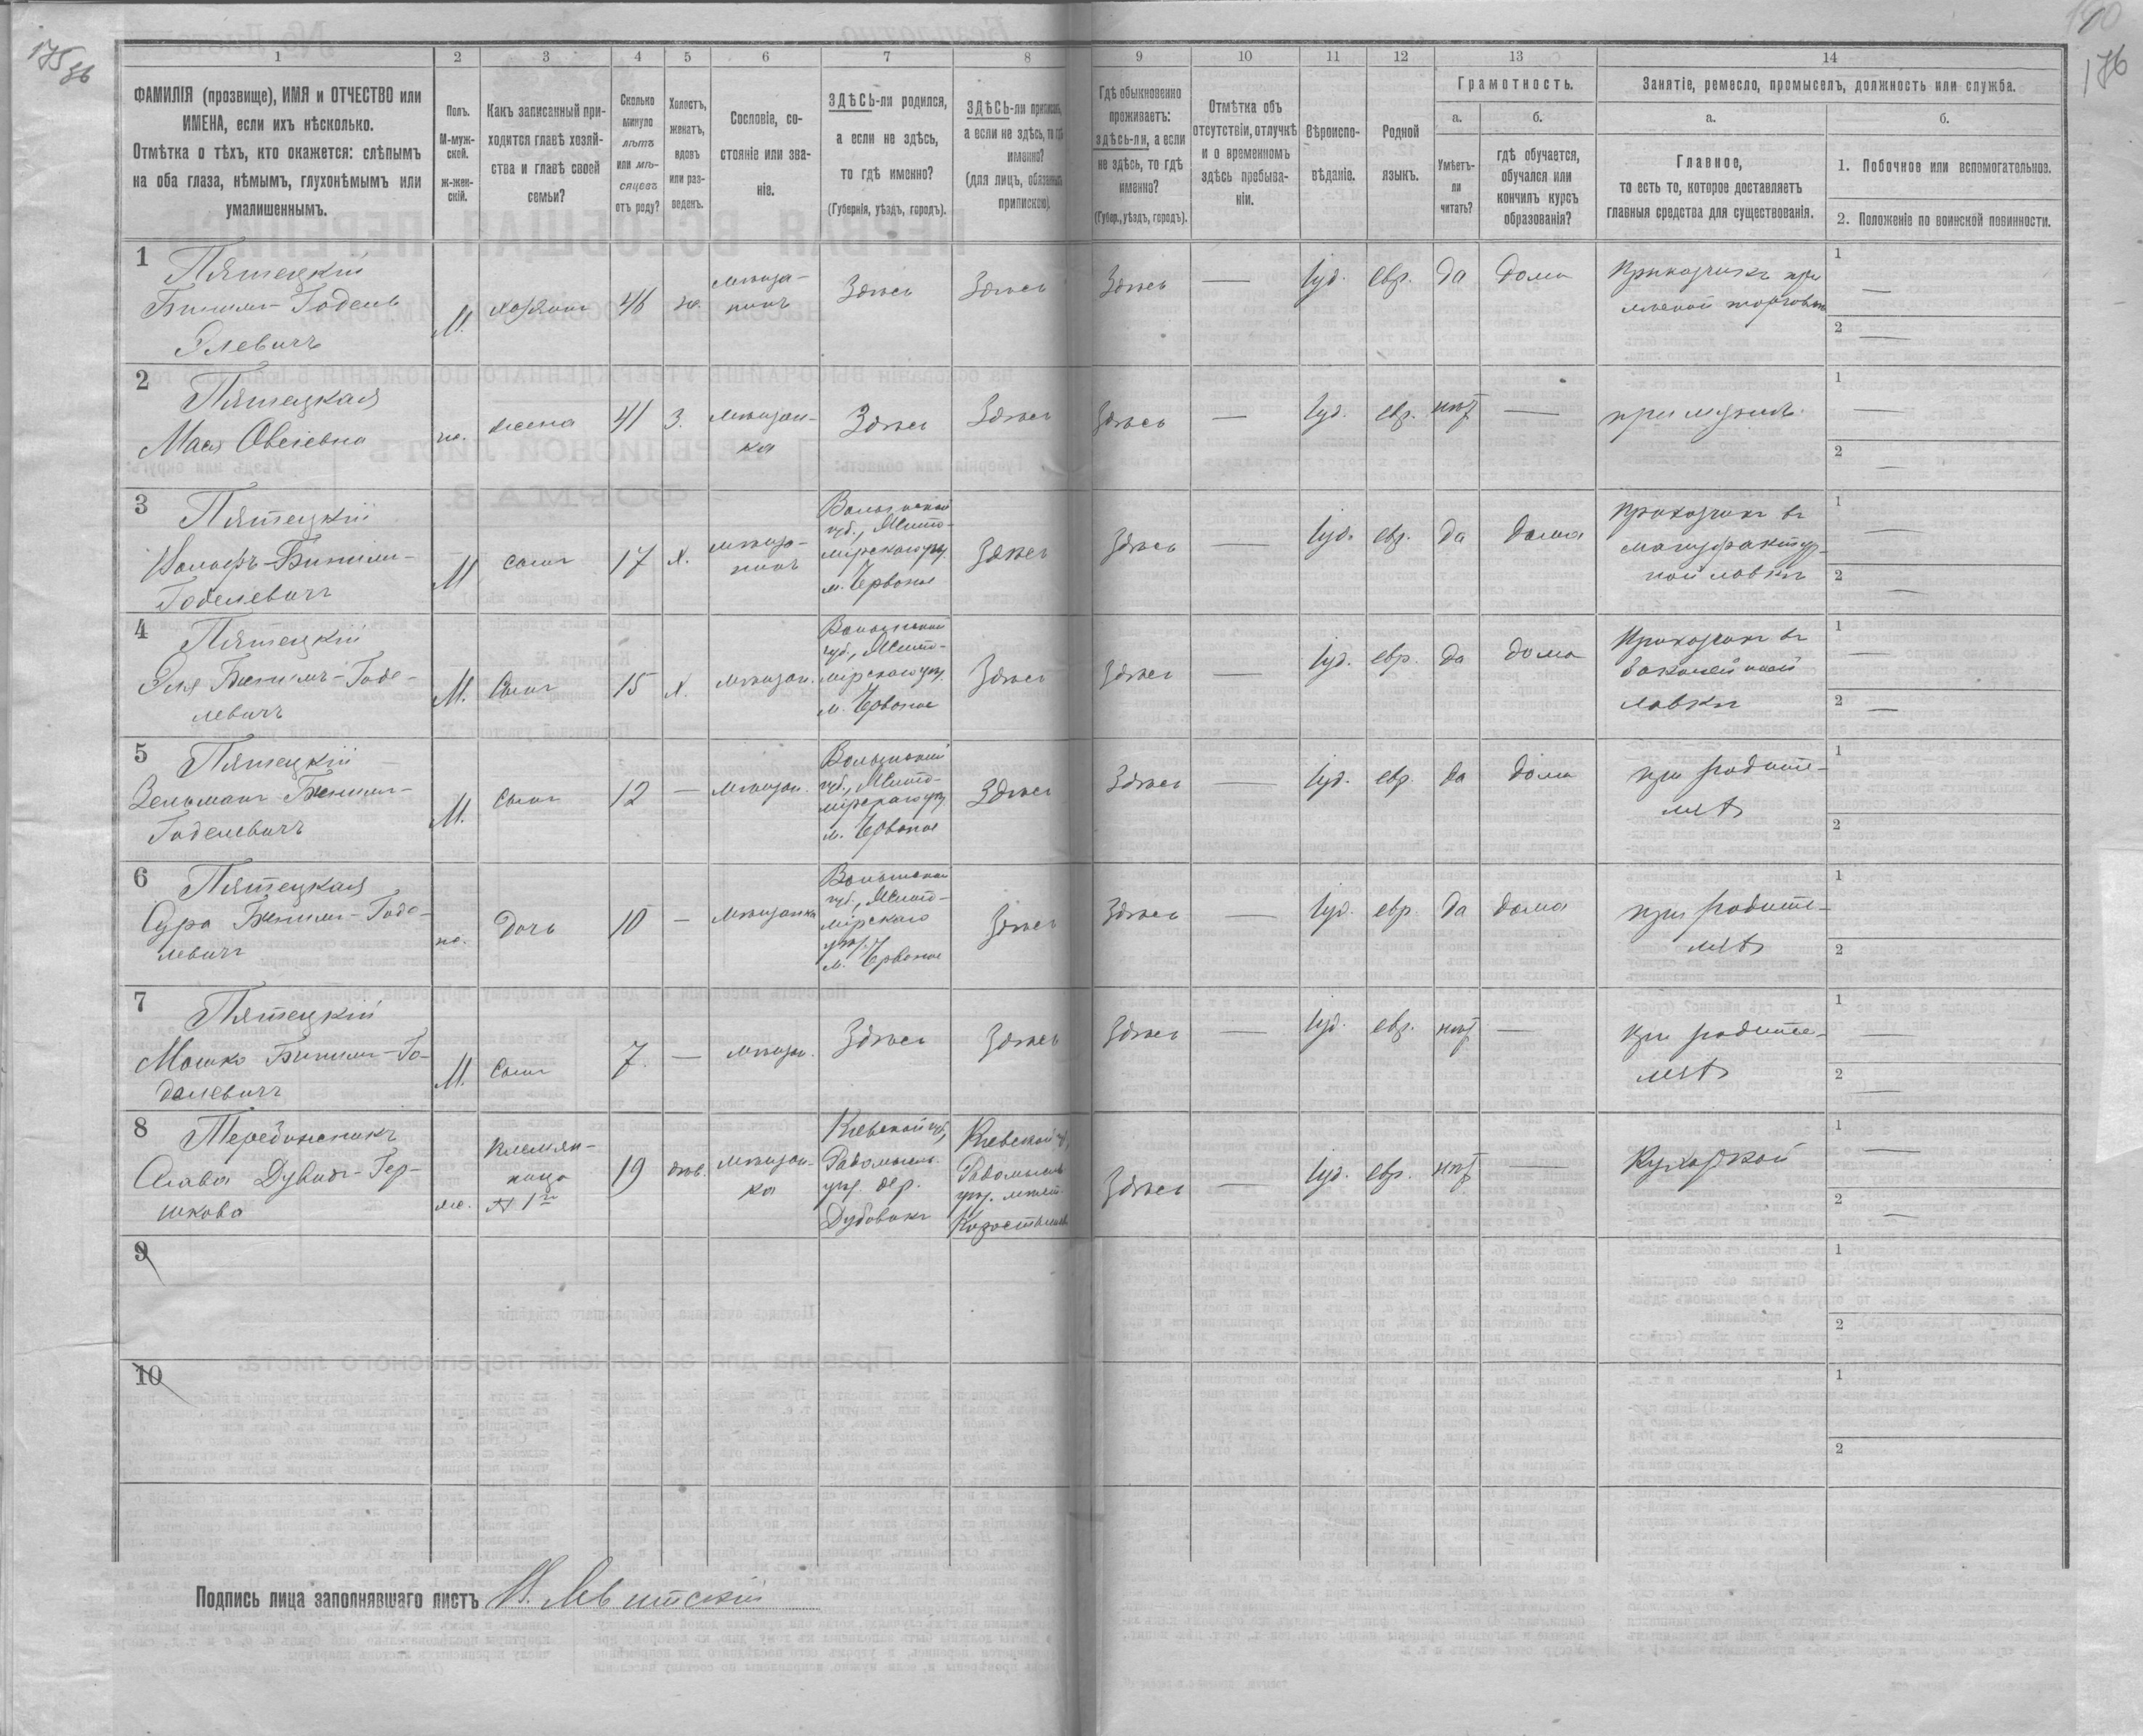 175
36
190
176
1 2 3 4 5 6 7 8 9 10 11 12 13 14
ФАМИЛІЯ (прозвище), ИМЯ и ОТЧЕСТВО или
ИМЕНА, если ихъ нѣсколько.
Отмѣтка о тѣхъ, кто окажется: слѣпымъ
на оба глаза, нѣмымъ, глухонѣмымъ или
умалишеннымъ.
Полъ.
М-муж-
ской.
ж-жен-
скій.
Какъ записанный при-
ходится главѣ хозяй-
ства и главѣ своей
семьи?
Сколько
минуло
лѣтъ
или мѣ-
сяцевъ
отъ роду?
Холостъ,
женатъ,
вдовъ
или раз-
веденъ.
Сословіе, со-
стояніе или зва-
ніе.
ЗДѢСЬ-ли родился,
а если не здѣсь,
то гдѣ именно?
(Губернія, уѣздъ, городъ).
ЗДѢСЬ-ли приписанъ,
а если не здѣсь, то гдѣ
именно?
(для лицъ, обязанныхъ
припискою).
Гдѣ обыкновенно
проживаетъ:
здѣсь-ли, а если
не здѣсь, то гдѣ
именно?
(Губер., уѣздъ, городъ).
Отмѣтка объ
отсутствіи, отлучкѣ
и о временномъ
здѣсь пребыва-
ніи.
Вѣроиспо-
вѣданіе.
Родной
языкъ.
Грамотность.
а.
Умѣетъ-
ли
читать?
б.
гдѣ обучается,
обучался или
кончилъ курсъ
образованія?
Занятіе, ремесло, промыселъ, должность или служба.
а.
Главное,
то есть то, которое доставляетъ
главныя средства для существованія.
б.
1. Побочное или вспомогательное.
2. Положеніе по воинской повинности.
1
Пятецкій
М. хозяинъ 46 ж. мѣща-
нинъ Здѣсь Здѣсь Здѣсь — Іуд. евр. да дома Приказчикъ при
1 —
2 —
2
Пятецкая
ж. жена 41 З. мѣщан-
ка Здѣсь Здѣсь Здѣсь — Іуд. евр. нѣтъ — при мужѣ
1 —
2 —
3
Пятецкій
Годелевичъ
М Сынъ 17 х. мѣща-
нинъ
Волынской
губ., Жито-
мірскаго уѣз.
м. Червоное
Здѣсь Здѣсь — Іуд. евр. да дома
Приказчикъ въ
мануфактур-
ной лавкѣ
1 —
2 —
4
Пятецкій
левичъ
М. Сынъ 15 х. мѣщан.
Волынской
губ., Жито-
мірскаго уѣз.
м. Червоное
Здѣсь Здѣсь — Іуд. евр. да дома
Приказчикъ въ
бакалейной
лавкѣ
1 —
2 —
5
Пятецкій
Годелевичъ
М. Сынъ 12 — мѣщан.
Волынской
губ., Жито-
мірскаго уѣз.
м. Червоное
Здѣсь Здѣсь — Іуд. евр. да дома
при родите-
ляхъ
1
2
6
Пятецкая
левичъ
ж. Дочь 10 — Мѣщанка
Волынской
губ., Жито-
мірскаго
уѣз.
м. Червоное
Здѣсь Здѣсь — Іуд. евр. да дома
при родите-
ляхъ
1
2
7
Пятецкій
Мошко
делевичъ
М. Сынъ 7. — мѣщан. Здѣсь Здѣсь Здѣсь — Іуд. евр. нѣтъ —
при родите-
ляхъ
1 —
2 —
8
Слава Дувидъ-Гер-
шкова
ж. племян-
ница
№ 1го
19 дѣв. мѣщан-
ка
Кіевской губ.,
Радомысль.
уѣз. дер.
Кіевской губ,
Радомысль
уѣз. мѣст.
Здѣсь — Іуд. евр. нѣтъ — Кухаркой
1 —
2 —
9
1
2
10
1
2
Подпись лица заполнявшаго листъ Н. Левитскій